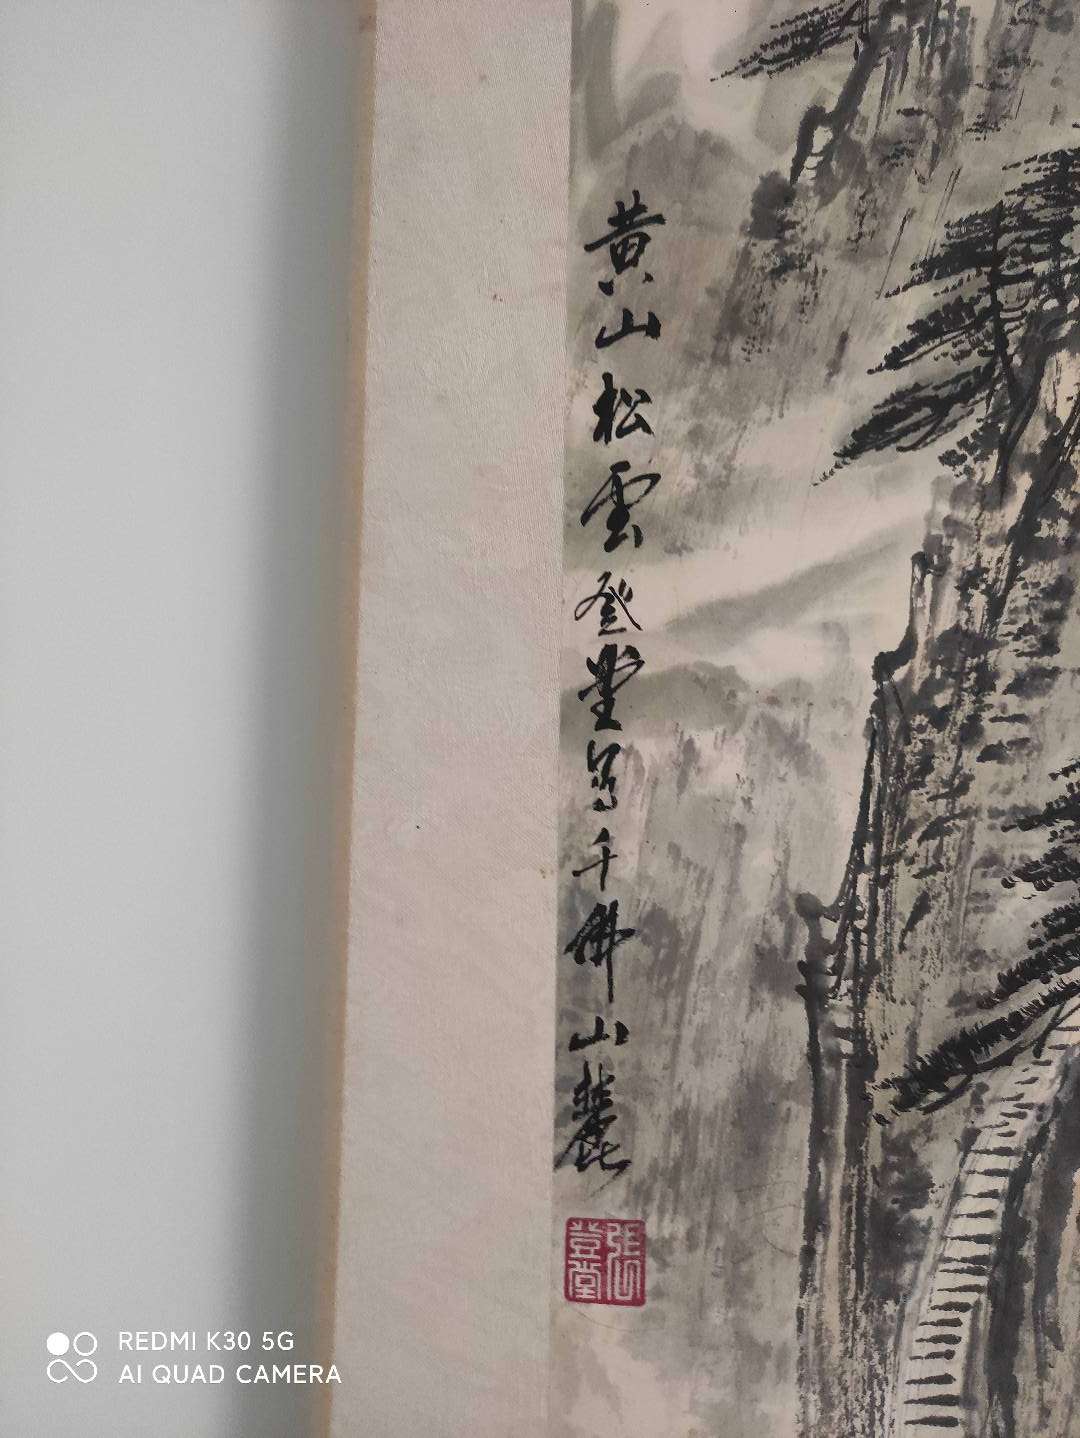 黄山松雲登堂写千佛山麓
張登堂印
REDMI K30 5G
AI QUAD CAMERA